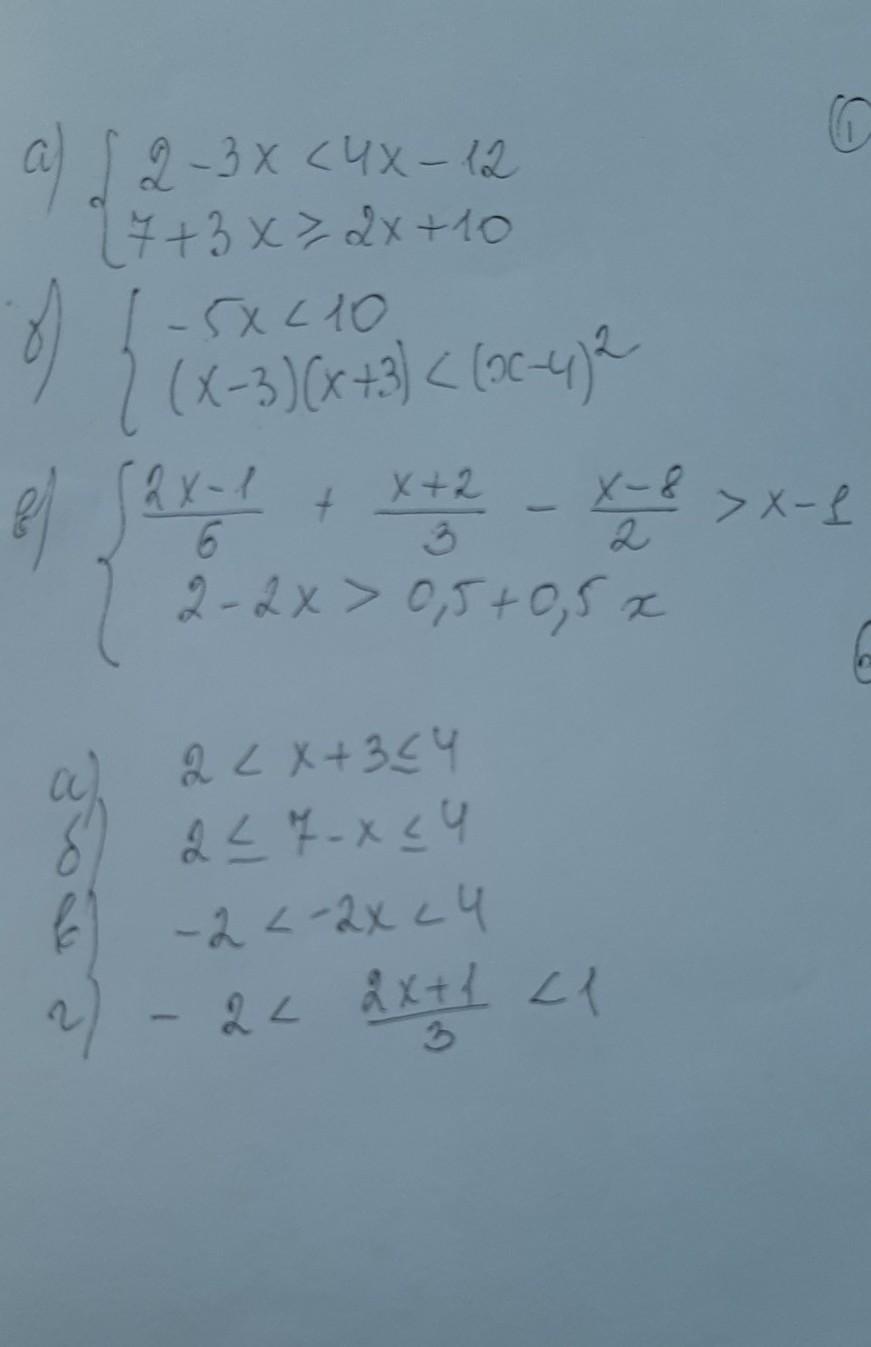 ①
а) { 2 - 3x < 4x - 12
7 + 3x ≥ 2x + 10
б) { -5x < 10
(x-3)(x+3) < (x-4)²
в) { (2x-1)/6 + (x+2)/3 - (x-8)/2 > x - 1
2 - 2x > 0,5 + 0,5x
а) 2 < x + 3 ≤ 4
б) 2 ≤ 7 - x ≤ 4
в) -2 < -2x < 4
г) - 2 < (2x+1)/3 < 1